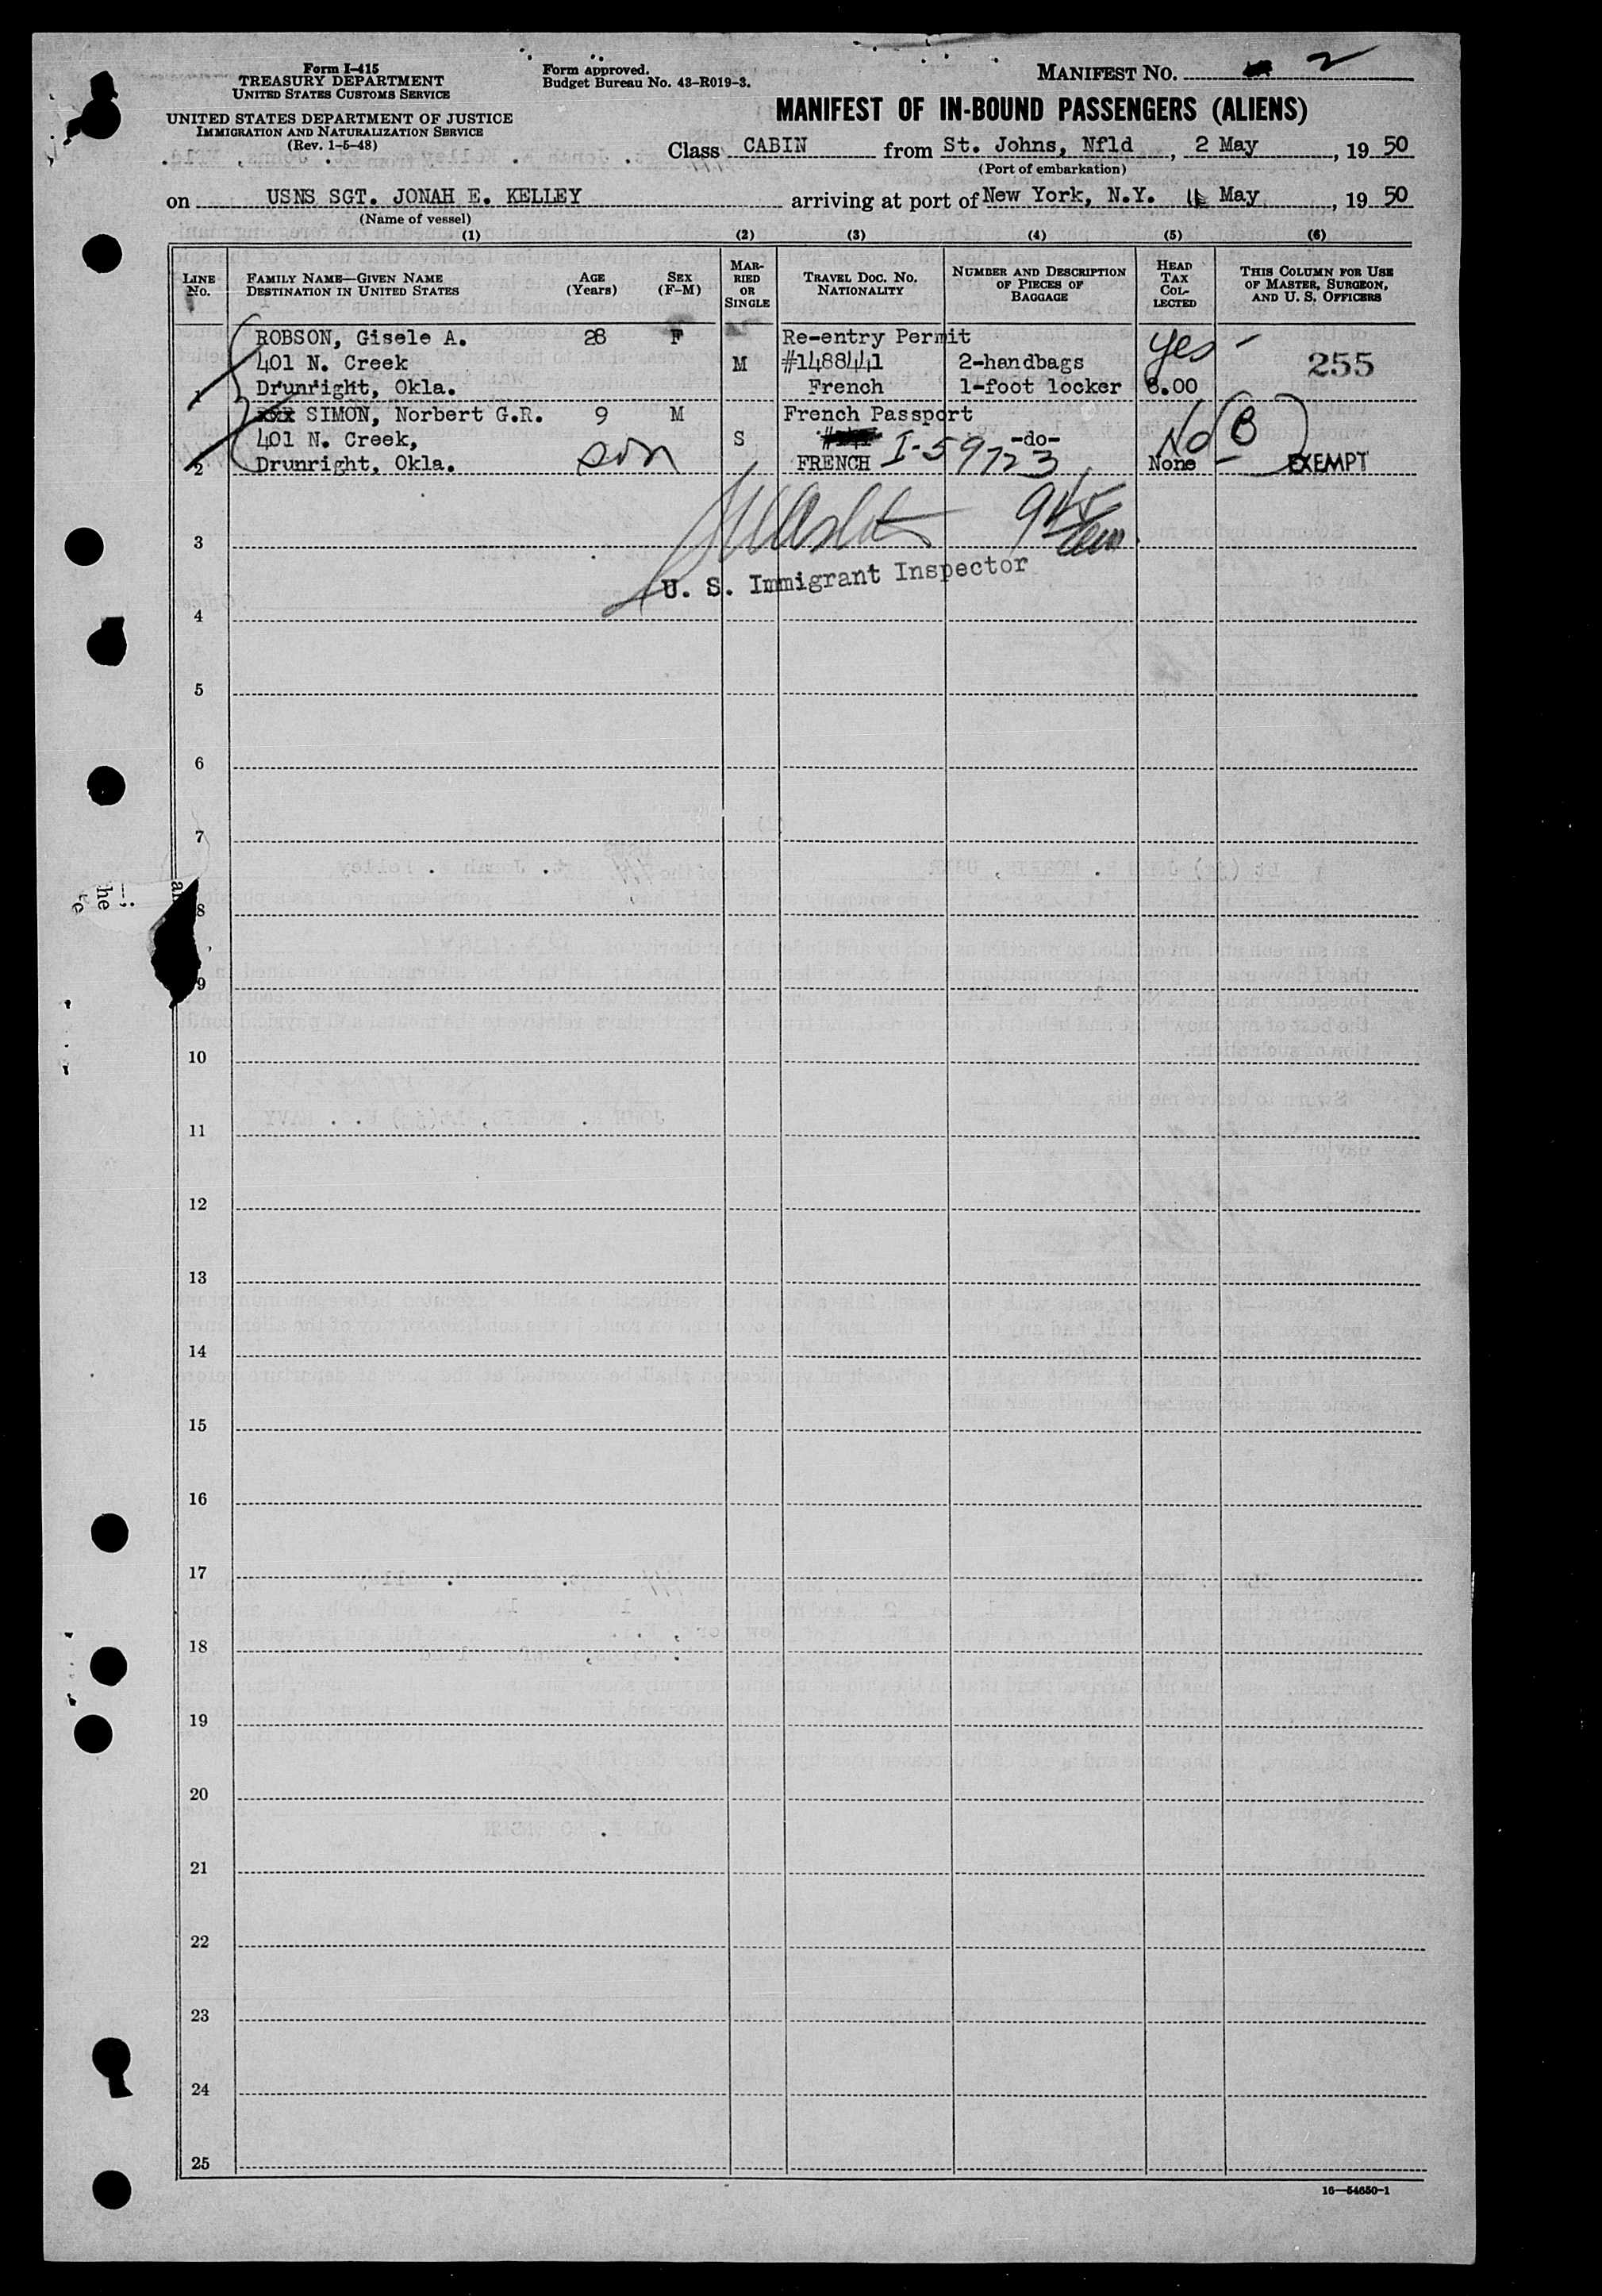 Form I-415
TREASURY DEPARTMENT
UNITED STATES CUSTOMS SERVICE
UNITED STATES DEPARTMENT OF JUSTICE
IMMIGRATION AND NATURALIZATION SERVICE
(Rev. 1-5-48)
Form approved.
Budget Bureau No. 43-R019-3.
MANIFEST NO. 2
MANIFEST OF IN-BOUND PASSENGERS (ALIENS)
Class CABIN from St. Johns, Nfld, 2 May, 19 50
(Port of embarkation)
on USNS SGT. JONAH E. KELLEY arriving at port of New York, N.Y. May, 19 50
(Name of vessel)
(1) (2) (3) (4) (5) (6)
LINE No.
FAMILY NAME—GIVEN NAME
DESTINATION IN UNITED STATES
AGE (Years)
SEX (F-M)
MARRIED OR SINGLE
TRAVEL DOC. NO. NATIONALITY
NUMBER AND DESCRIPTION OF PIECES OF BAGGAGE
HEAD TAX COLLECTED
THIS COLUMN FOR USE OF MASTER, SURGEON, AND U. S. OFFICERS
ROBSON, Gisele A. 28 F Re-entry Permit yes -
401 N. Creek M #1488441 2-handbags 255
1 Drunright, Okla. French 1-foot locker 8.00
xxx SIMON, Norbert G.R. 9 M French Passport
401 N. Creek, S -do- No (B)
2 Drunright, Okla. son FRENCH I-59723 None EXEMPT
3
U. S. Immigrant Inspector
4
5
6
7
8
9
10
11
12
13
14
15
16
17
18
19
20
21
22
23
24
25
16—54650-1